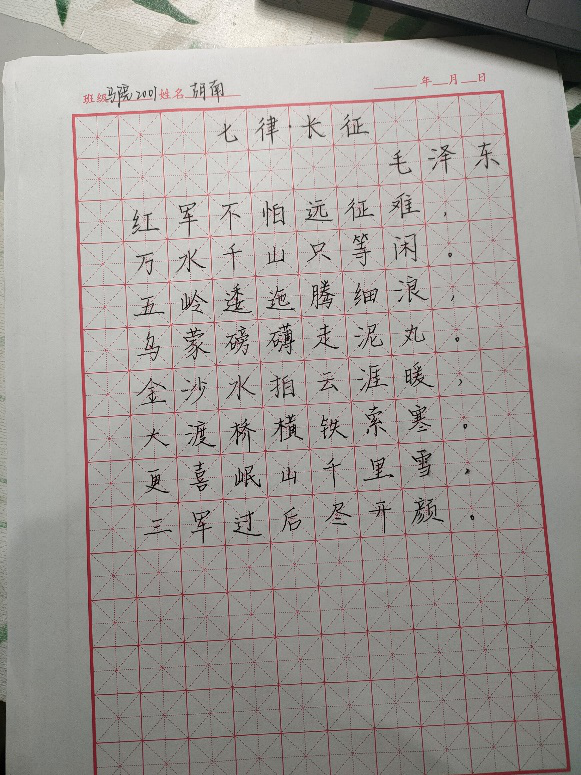 班级马院2001姓名胡南 年 月 日
七律·长征
毛泽东
红军不怕远征难，
万水千山只等闲。
五岭逶迤腾细浪，
乌蒙磅礴走泥丸。
金沙水拍云涯暖，
大渡桥横铁索寒。
更喜岷山千里雪，
三军过后尽开颜。